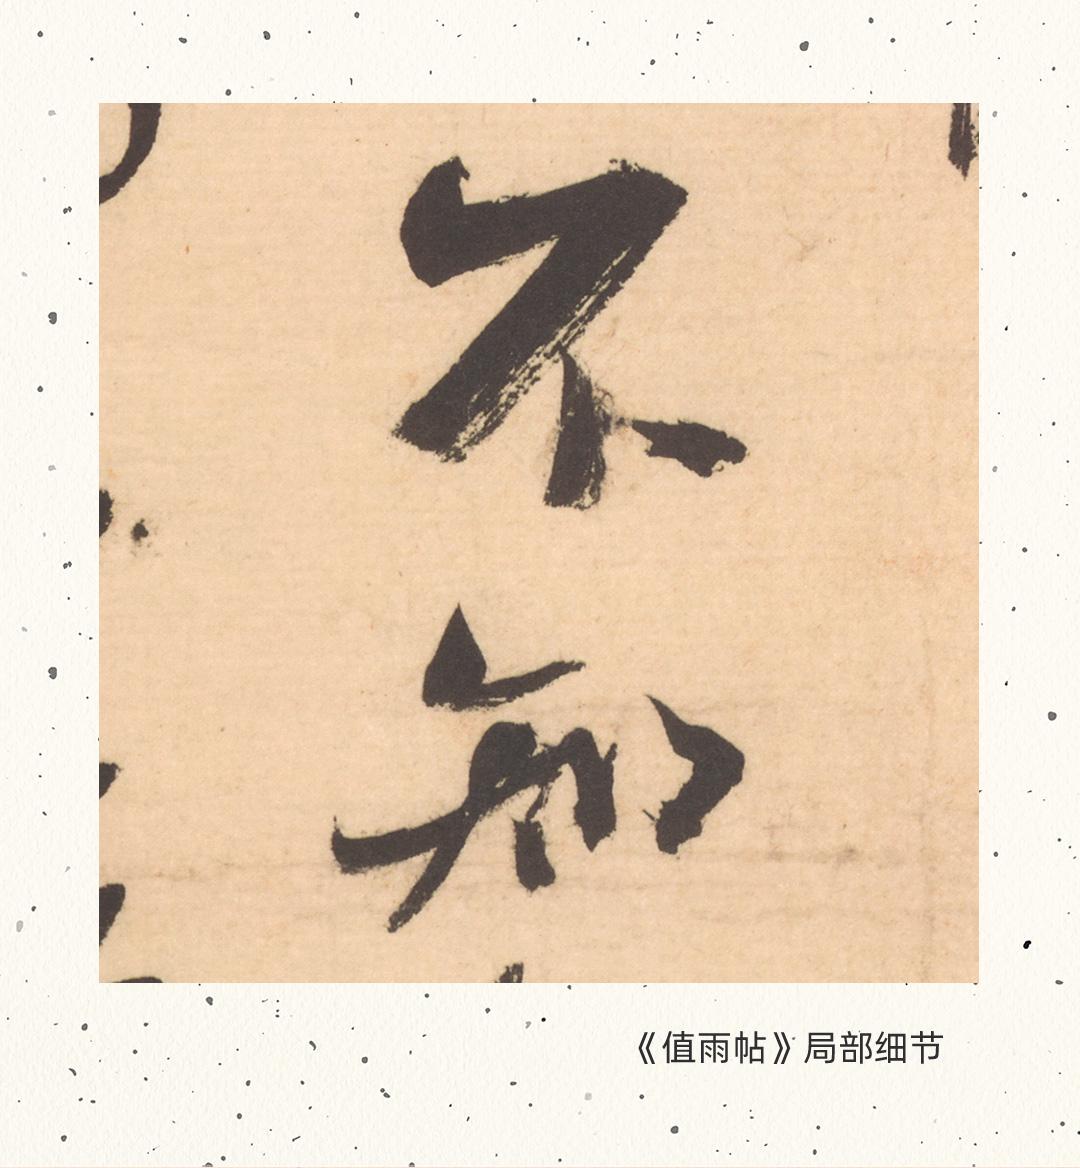 不
知
《值雨帖》局部细节